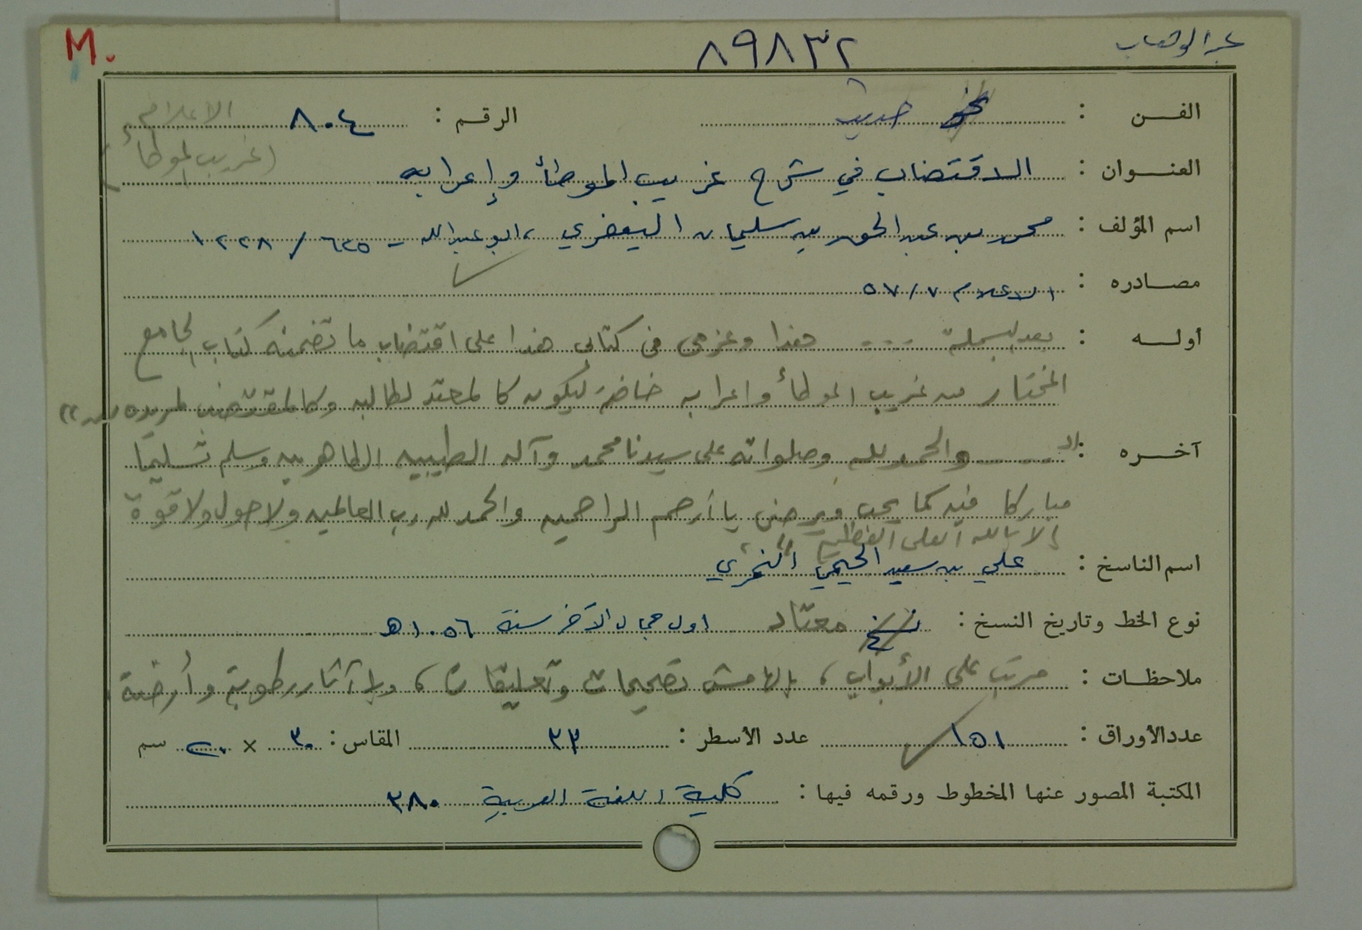 M. ٨٩٨٣٢ عبد الوهاب
الفن : نحو حديث الرقم : ٨٠٤ الاعلام
(غريب الموطأ)
العنوان : الاقتضاب في شرح غريب الموطأ وإعرابه
اسم المؤلف : محمد بن عبد الحق بن سليمان اليعفري ، ابو عبد الله - ٦٢٥ / ١٢٢٨
مصادره : الاعلام ٥٧/٧
أوله : بعد البسملة ... هذا وغرضي في كتابي هذا على اقتضاب ما تضمنه كتاب الجامع
المختار من غريب الموطأ واعرابه خاصة ليكون كالمعتد لطالبه وكالمقتضب لمريده
آخره : والحمد لله وصلواته على سيدنا محمد وآله الطيبين الطاهرين وسلم تسليما
مباركا فيه كما يحب ويرضى يا أرحم الراحمين والحمد لله رب العالمين ولا حول ولا قوة
إلا بالله العلي العظيم "
اسم الناسخ : علي بن سعيد النمري
نوع الخط وتاريخ النسخ : نسخ معتاد اول جماد الآخر سنة ١٠٥٦ هـ
ملاحظات : مرتب على الأبواب ، بالهامش تصحيحات وتعليقات ، وبه آثار رطوبة وأرضة .
عدد الأوراق : ١٥١ عدد الأسطر : ٣٣ المقاس : ٣٠ × ٢٠ سم
المكتبة المصور عنها المخطوط ورقمه فيها : كلية اللغة العربية ٣٨٠